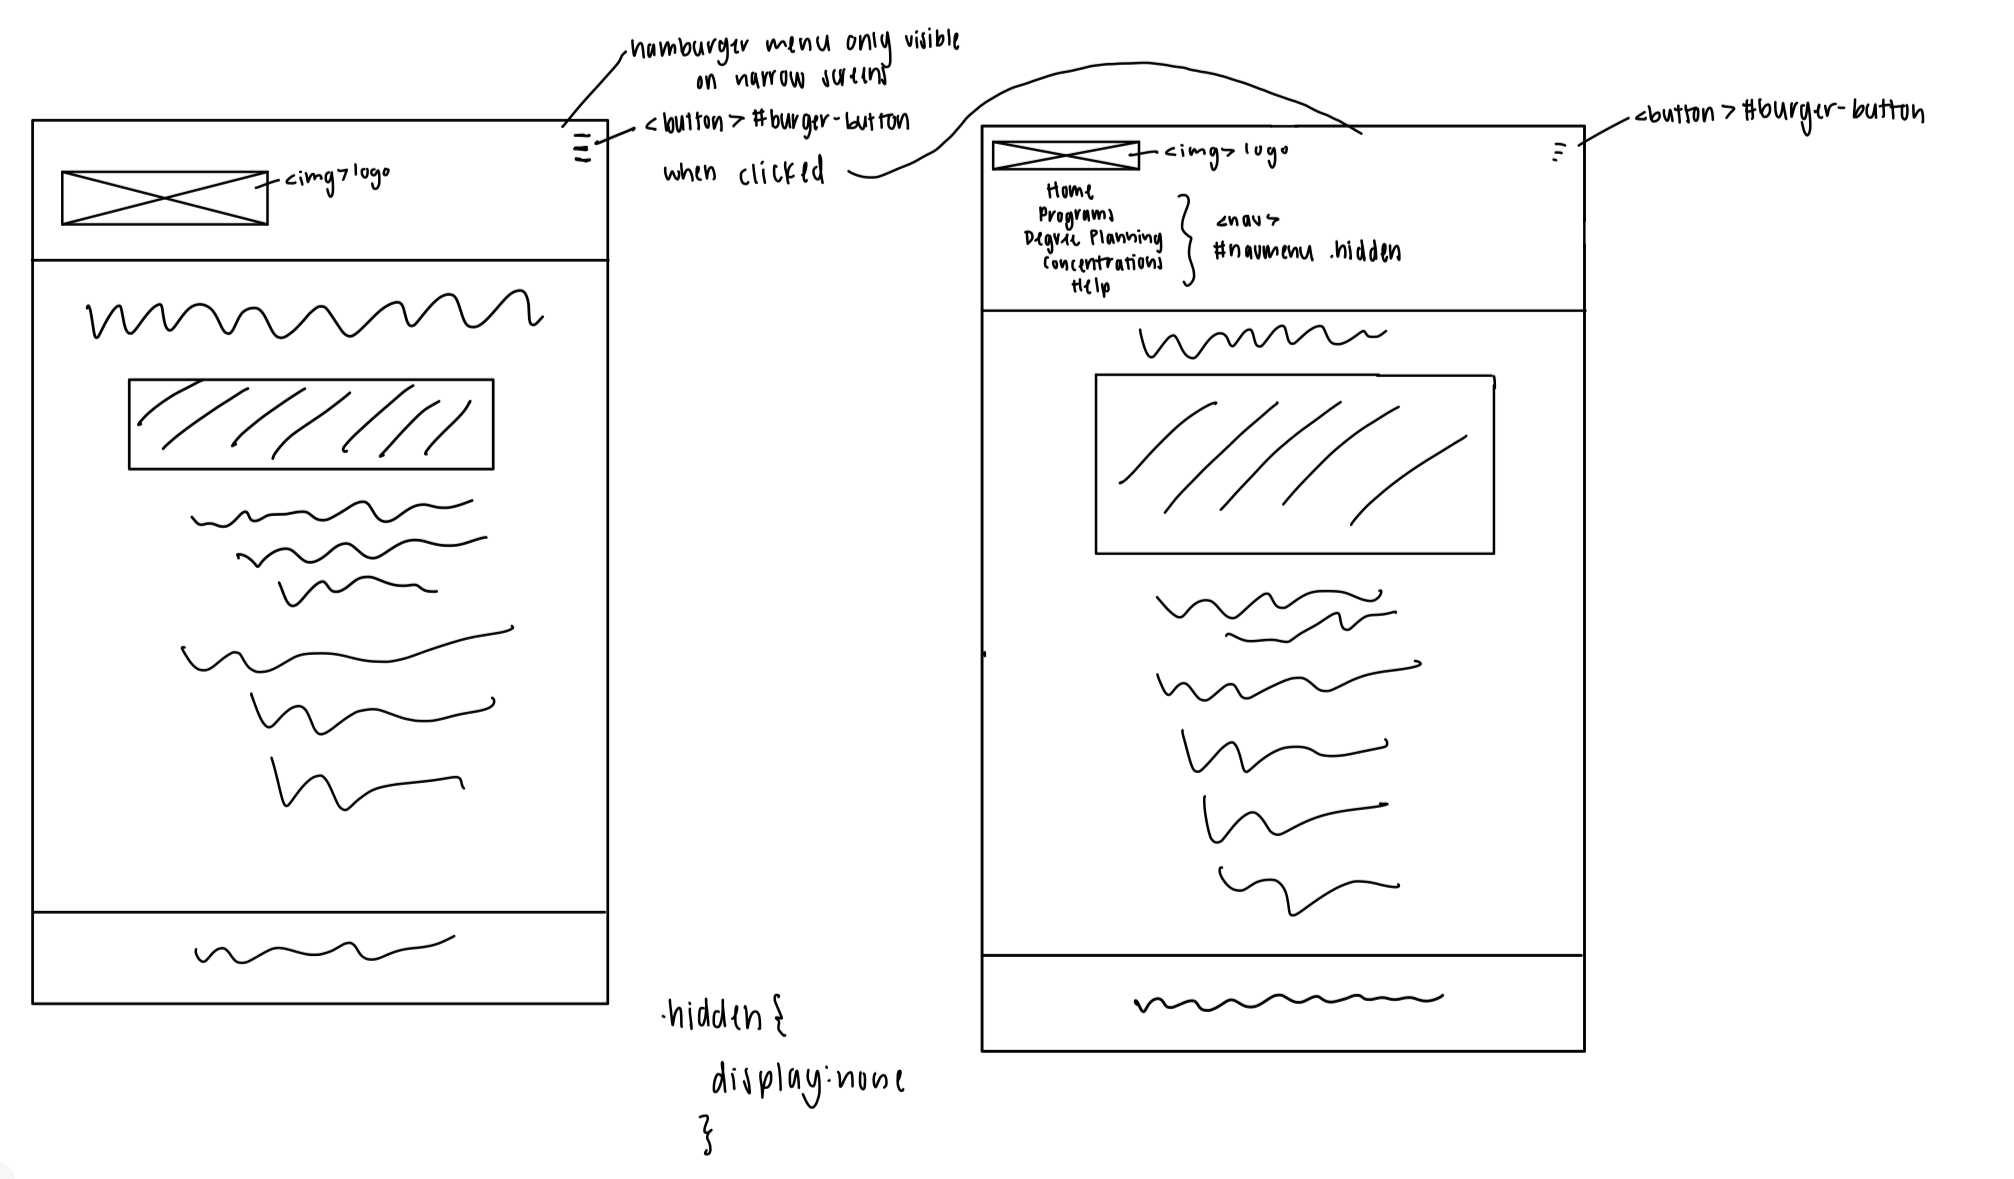 hamburger menu only visible
on narrow screens
<button> #burger-button
when clicked
<img> logo
<button> #burger-button
<img> logo
Home
Programs
Degree Planning
Concentrations
Help
<nav>
#navmenu .hidden
.hidden {
display:none
}